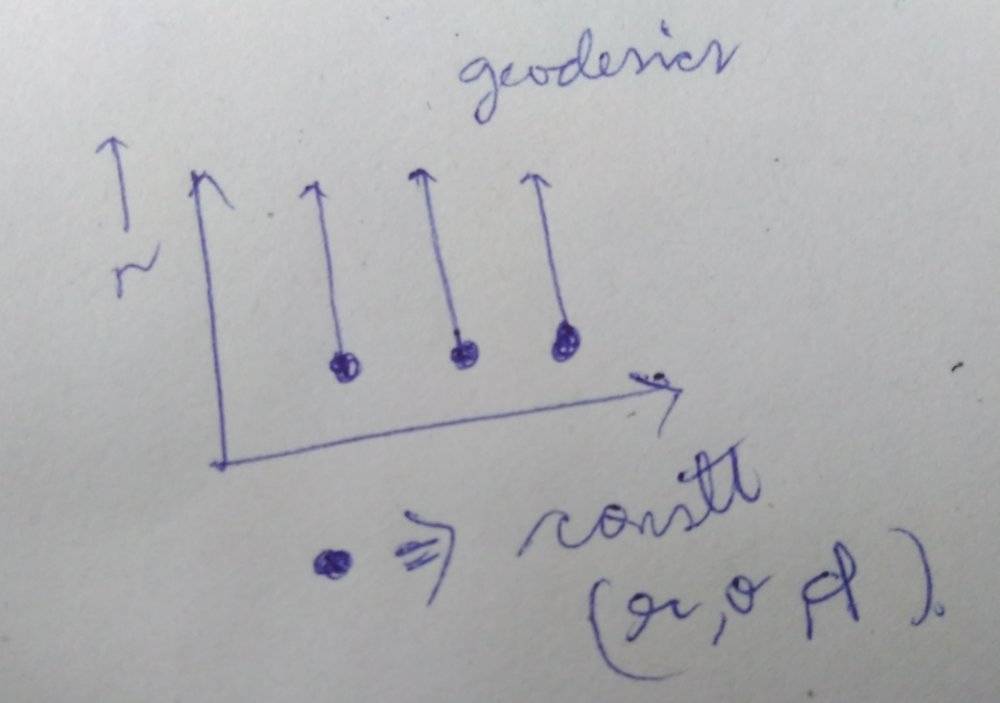 geodesics
• ⇒ constt
(r, θ, φ).